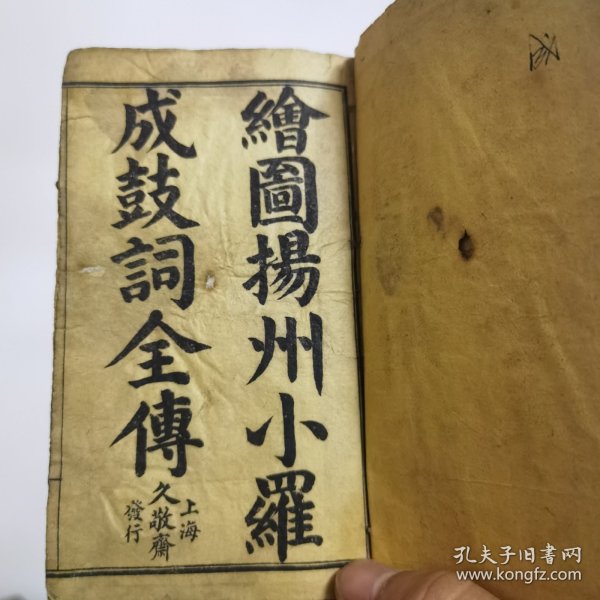 繪圖揚州小羅
成鼓詞全傳
上海
久敬齋
發行
成
孔夫子旧书网
www.kongfz.com